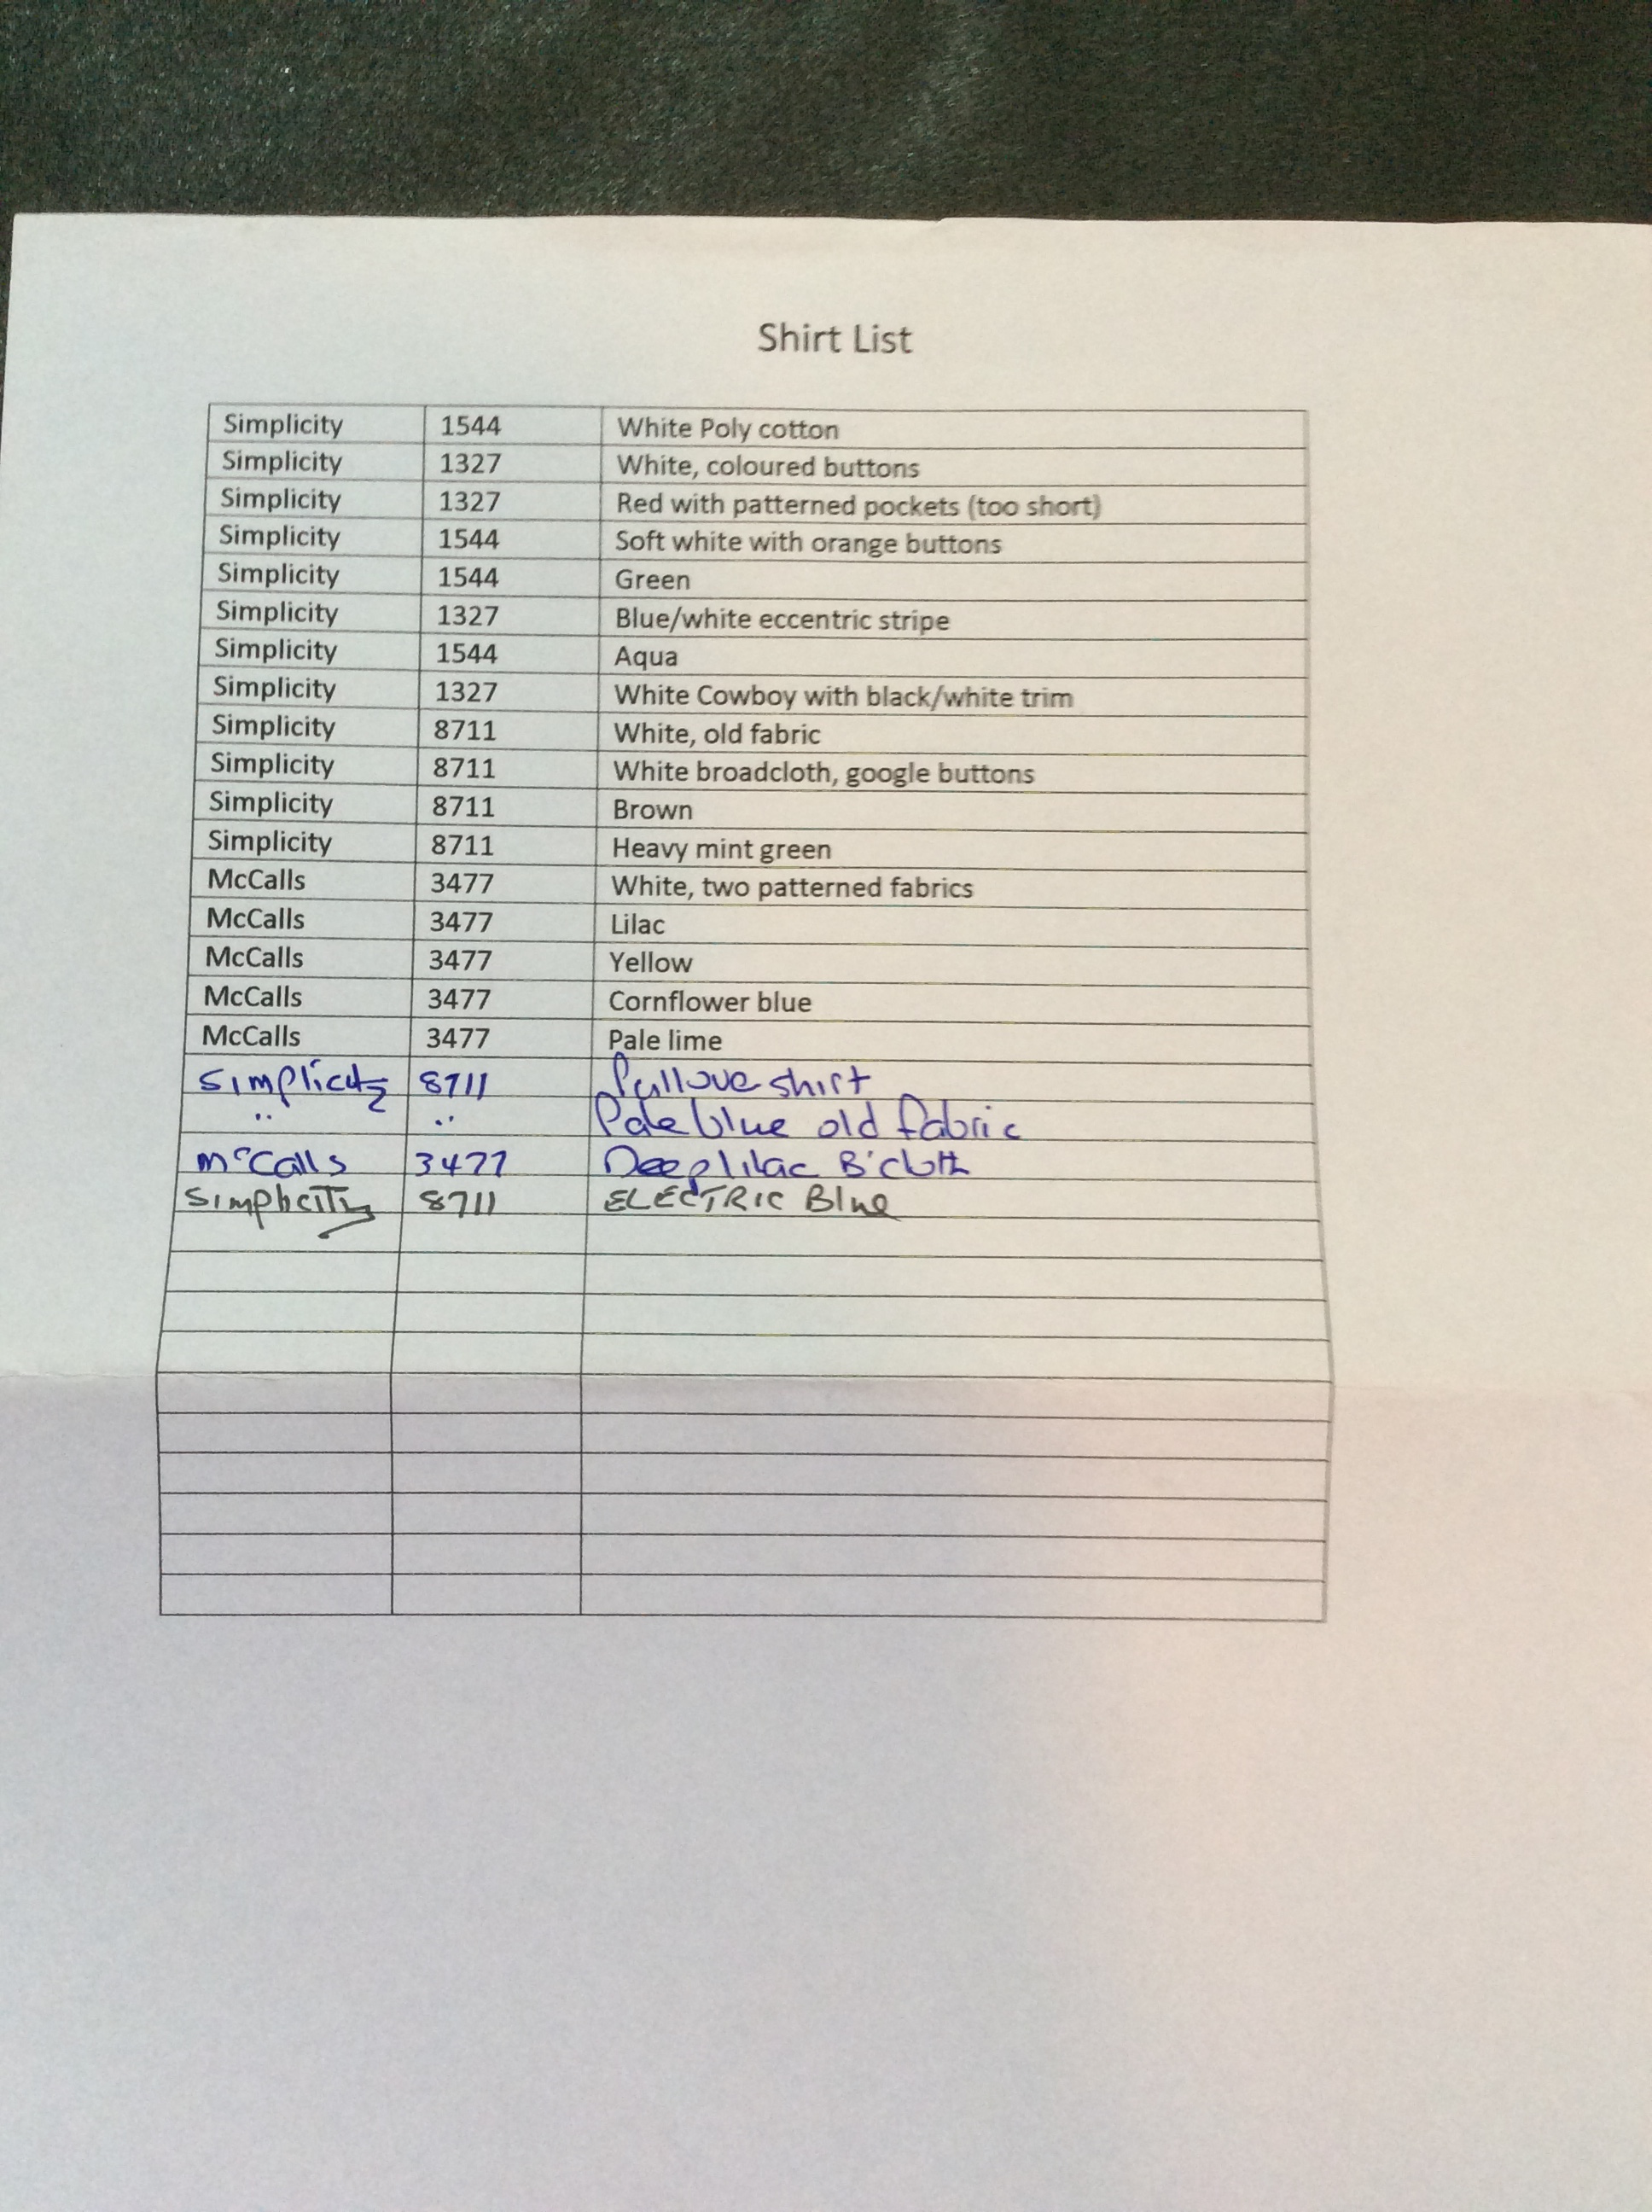 Shirt List
Simplicity 1544 White Poly cotton
Simplicity 1327 White, coloured buttons
Simplicity 1327 Red with patterned pockets (too short)
Simplicity 1544 Soft white with orange buttons
Simplicity 1544 Green
Simplicity 1327 Blue/white eccentric stripe
Simplicity 1544 Aqua
Simplicity 1327 White Cowboy with black/white trim
Simplicity 8711 White, old fabric
Simplicity 8711 White broadcloth, google buttons
Simplicity 8711 Brown
Simplicity 8711 Heavy mint green
McCalls 3477 White, two patterned fabrics
McCalls 3477 Lilac
McCalls 3477 Yellow
McCalls 3477 Cornflower blue
McCalls 3477 Pale lime
Simplicity 8711 Pullove shirt
" " Pale blue old fabric
McCalls 3477 Deep lilac B'cloth
Simplicity 8711 ELECTRIC Blue